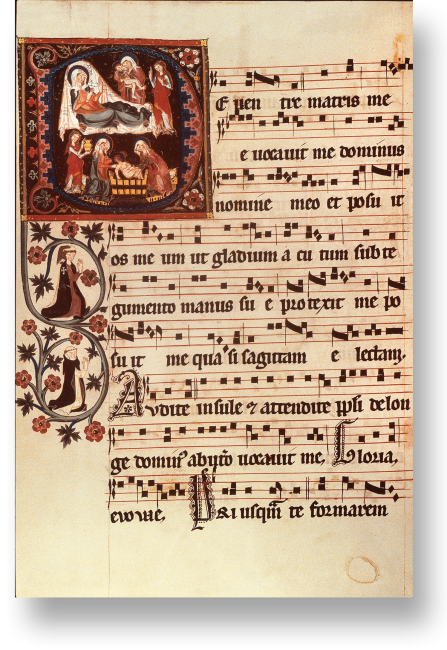 E pen tre matris me
e uocauit me dominus
nomine meo et posu it
os me um ut gladium a cu tum sub te
gumento manus su e protexit me po
su it me qua si sagittam e lectam.
Audite insule ⁊ attendite ppli de lon
ge domin⁹ ab uto uocauit me. Gloria.
evovae. Priusqm te formarem